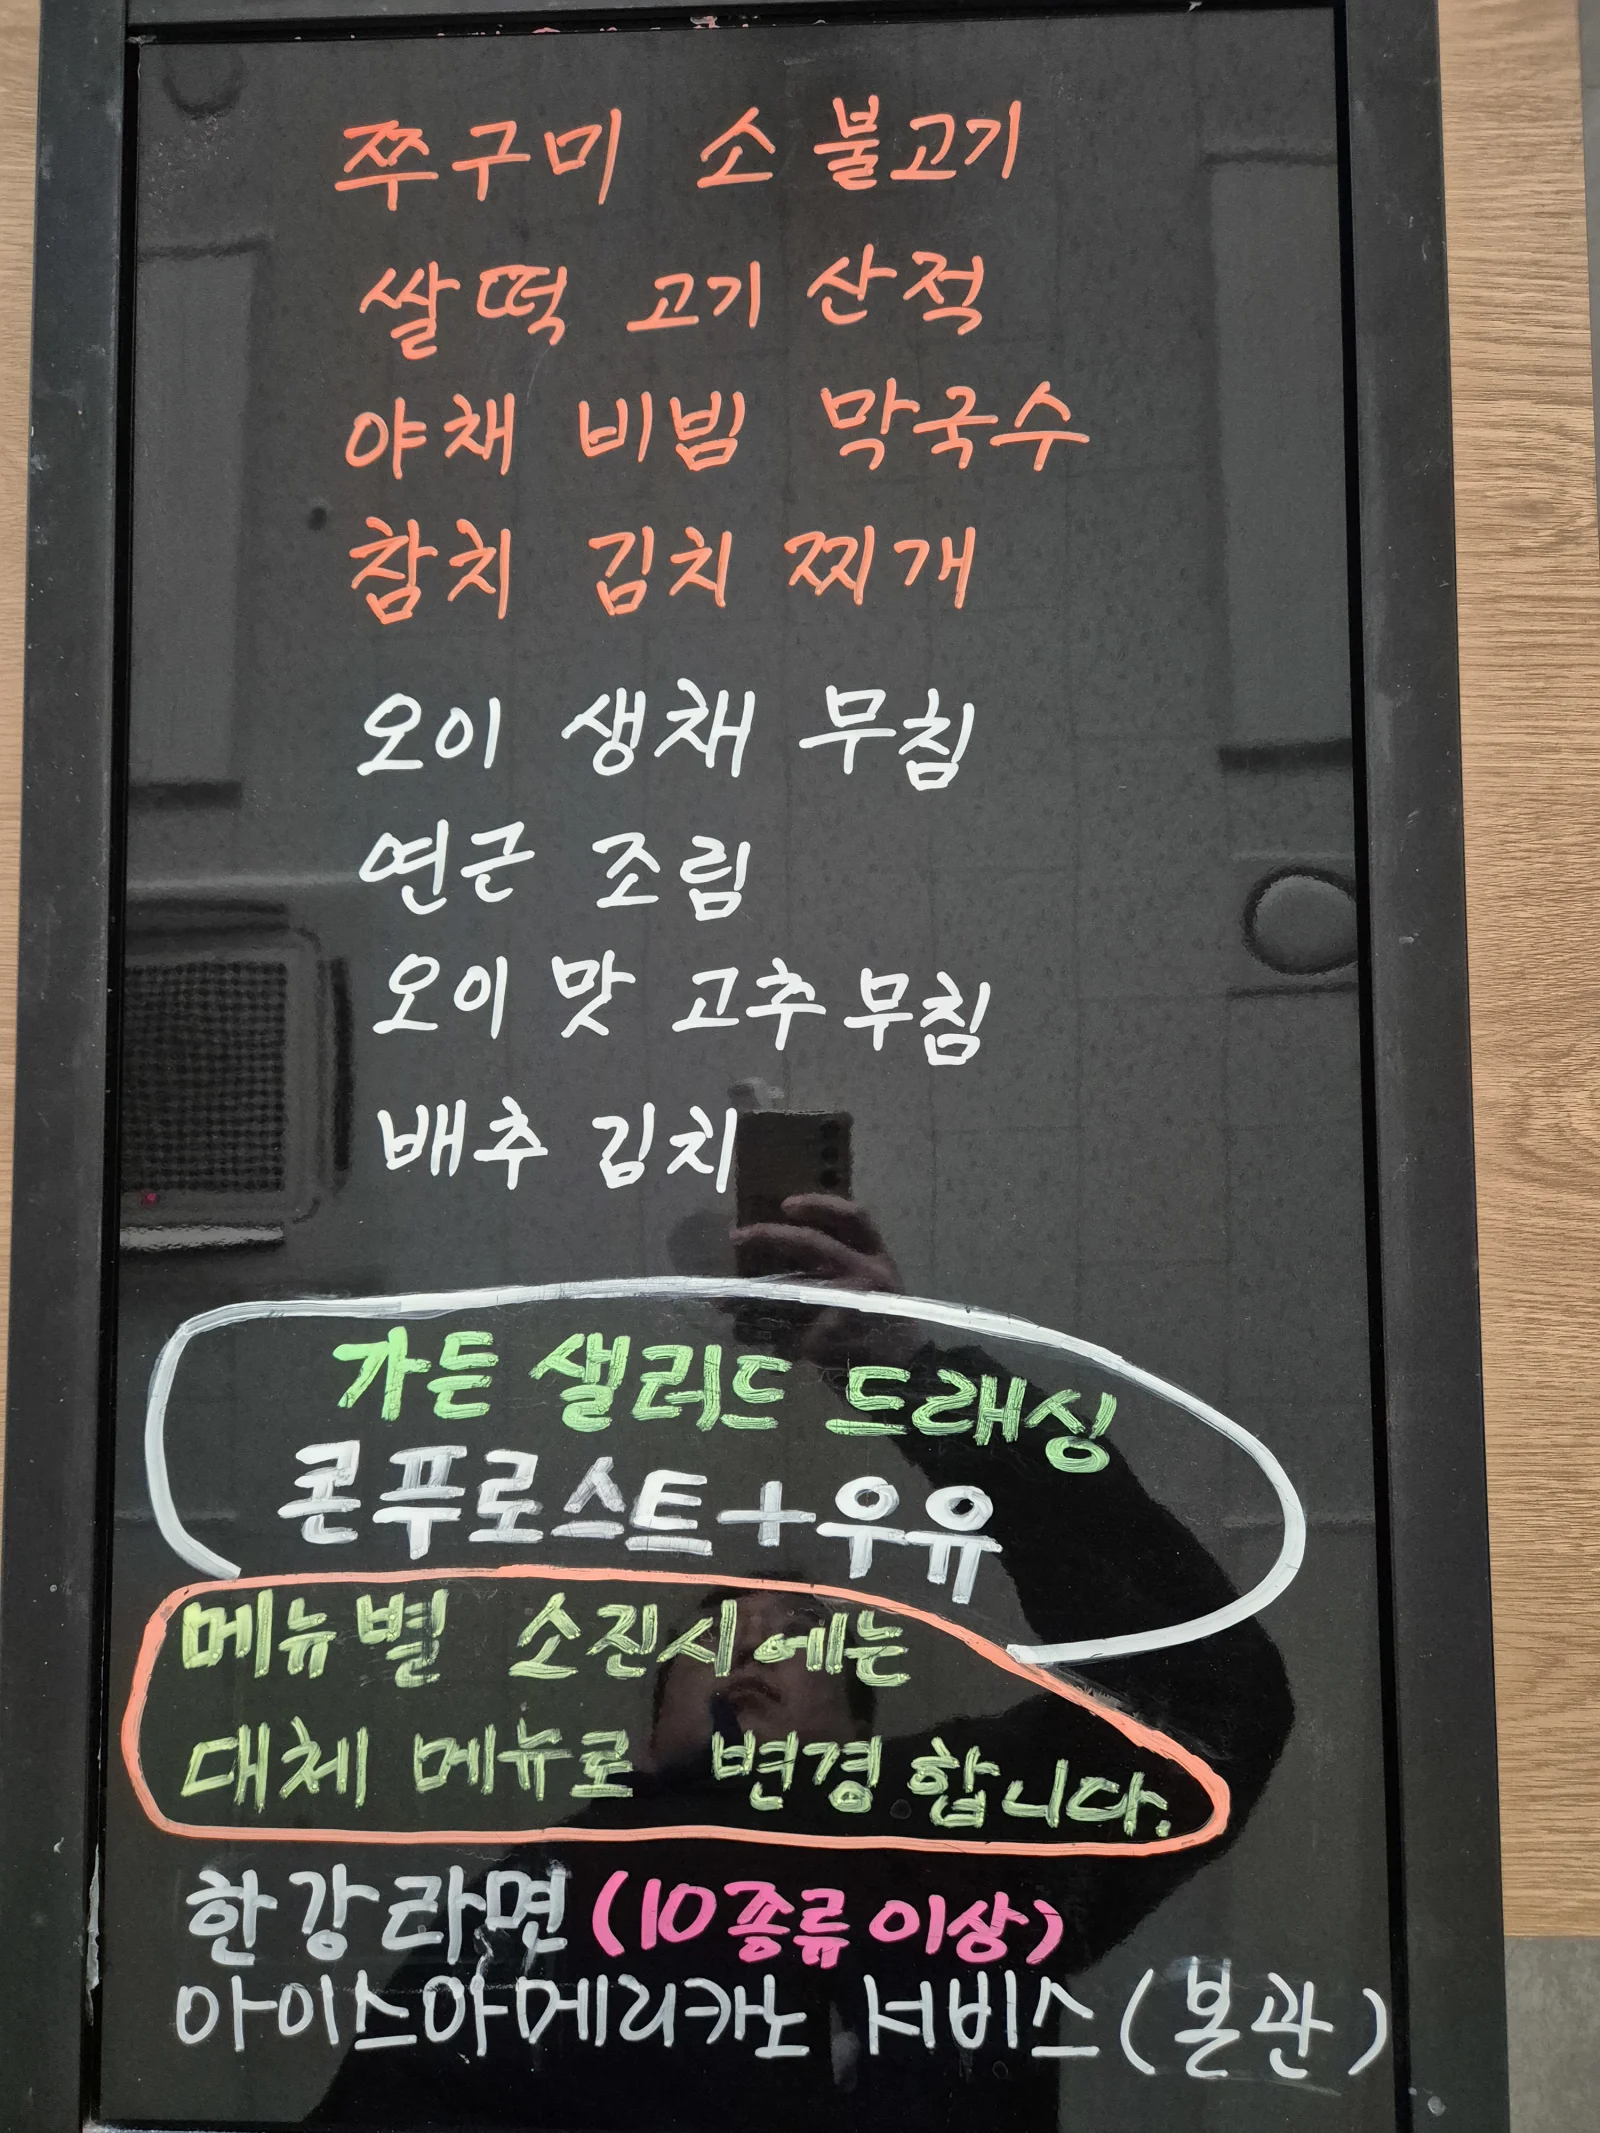 쭈구미 소 불고기
쌀떡 고기 산적
야채 비빔 막국수
참치 김치 찌개
오이 생채 무침
연근 조림
오이 맛 고추 무침
배추 김치
가든 샐러드 드래싱
콘푸로스트+우유
메뉴별 소진시에는
대체 메뉴로 변경합니다.
한강라면(10종류이상)
아이스아메리카노 서비스(본관)